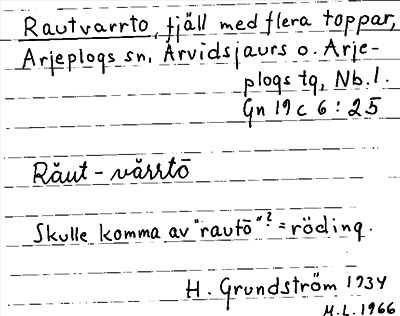 Rautvarrto, fjäll med flera toppar,
Arjeplogs sn, Arvidsjaurs o. Arje-
plogs tg, Nb. l.
Gn 19 c 6 : 25
Răut - vărrtō
Skulle komma av "rautō"? = röding.
H. Grundström 1934
M.L. 1966